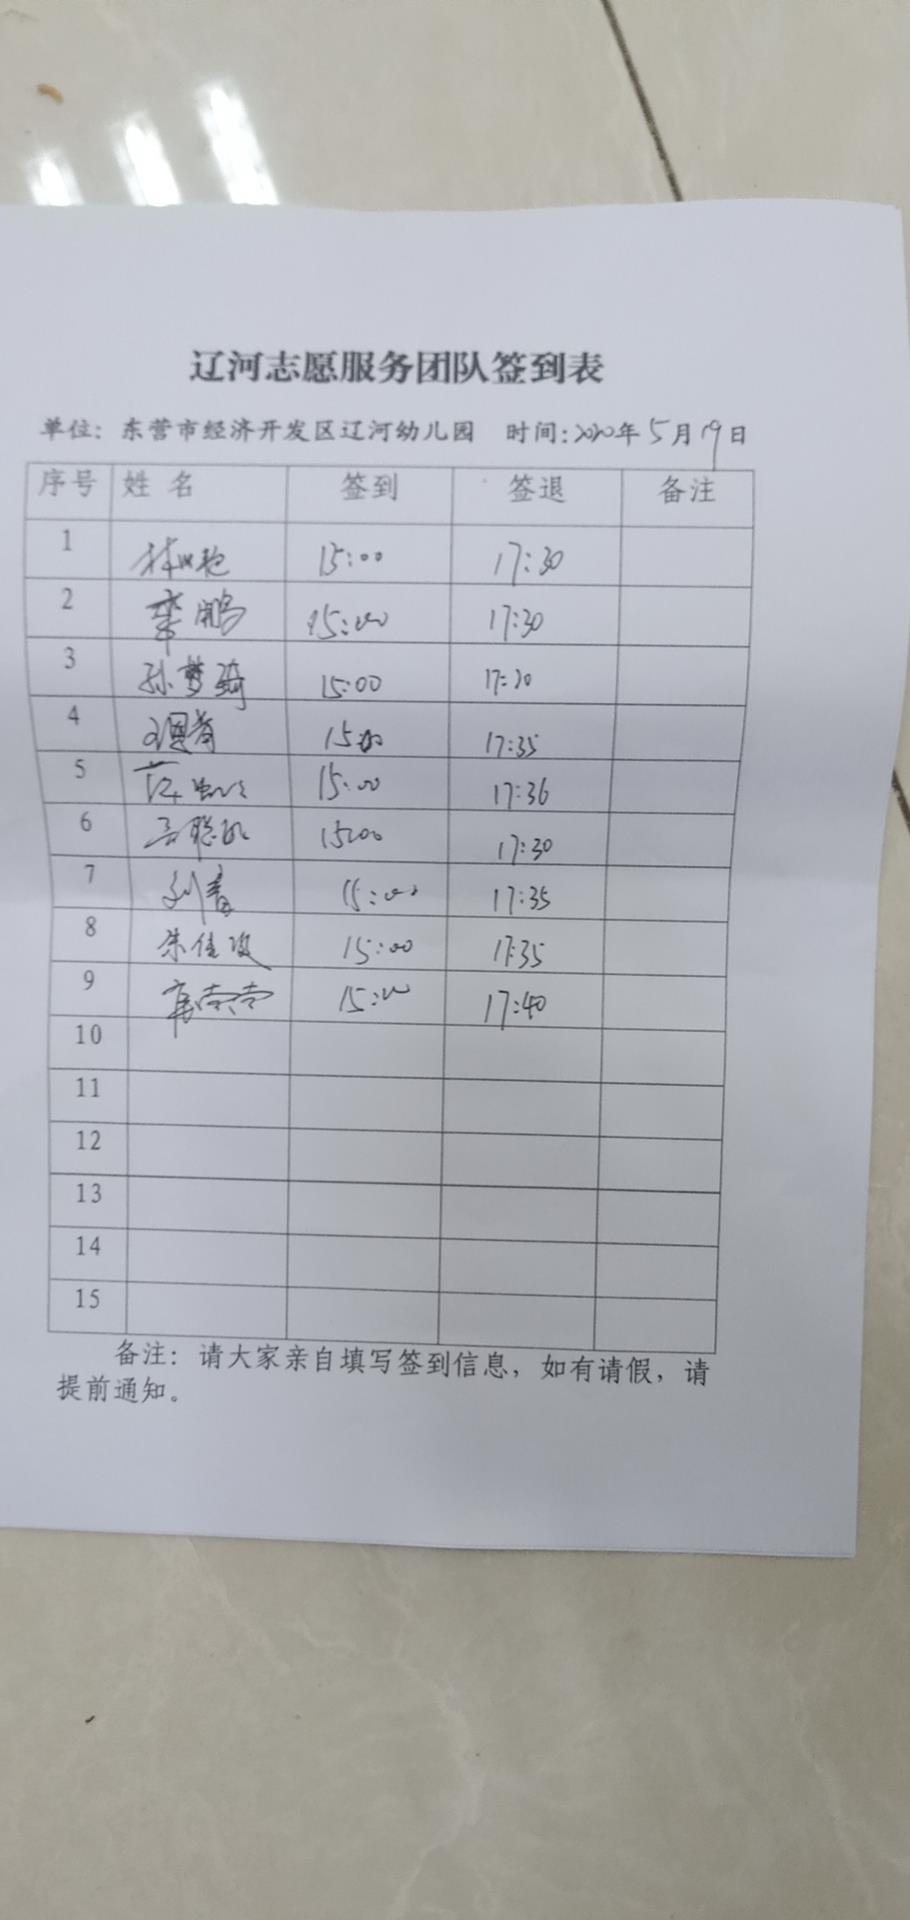 辽河志愿服务团队签到表
单位：东营市经济开发区辽河幼儿园 时间:2020年5月19日
序号 姓名 签到 签退 备注
1 15:00 17:30
2 栾鹏 15:00 17:30
3 孙梦琦 15:00 17:30
4 15:00 17:35
5 15:00 17:36
6 15:00 17:30
7 刘青 15:00 17:35
8 朱佳 15:00 17:35
9 15:00 17:40
10
11
12
13
14
15
备注：请大家亲自填写签到信息，如有请假，请
提前通知。